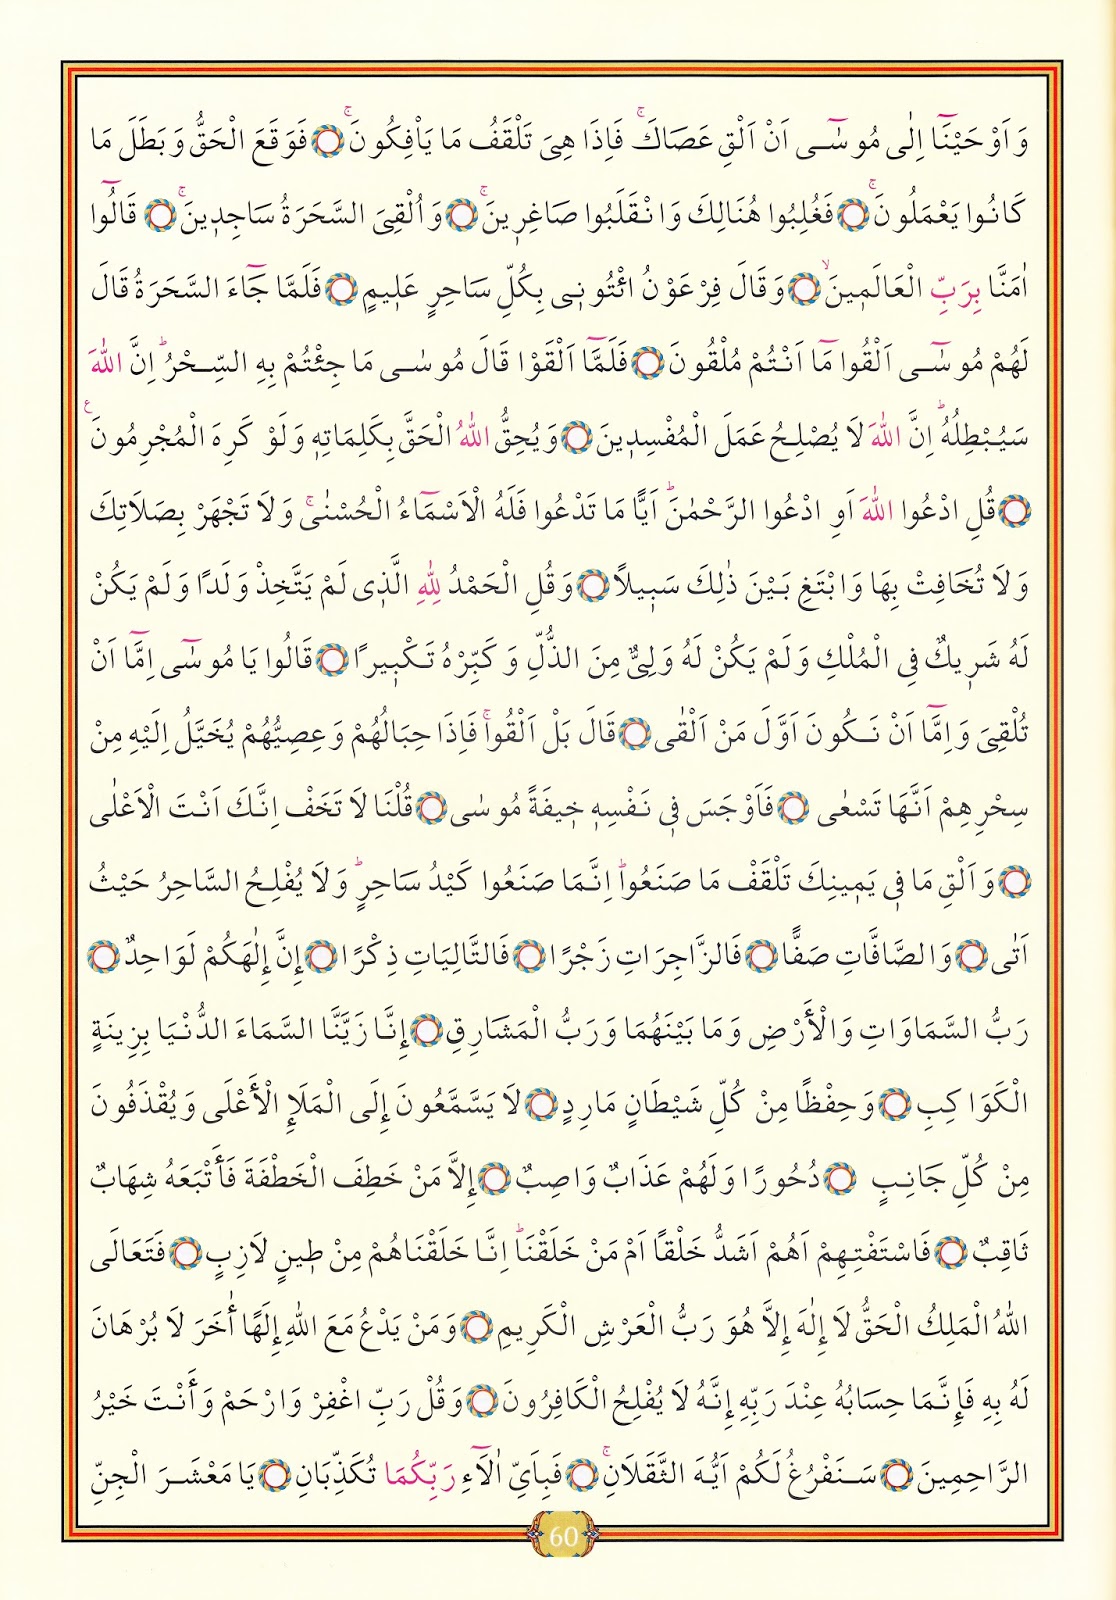 وَاَوْحَيْنَٓا اِلٰى مُوسٰٓى اَنْ اَلْقِ عَصَاكَۚ فَاِذَا هِىَ تَلْقَفُ مَا يَاْفِكُونَۚ فَوَقَعَ الْحَقُّ وَبَطَلَ مَا
كَانُوا يَعْمَلُونَۚ فَغُلِبُوا هُنَالِكَ وَانْقَلَبُوا صَاغِرٖينَۚ وَاُلْقِىَ السَّحَرَةُ سَاجِدٖينَۚ قَالُٓوا
اٰمَنَّا بِرَبِّ الْعَالَمٖينَۙ وَقَالَ فِرْعَوْنُ ائْتُونٖى بِكُلِّ سَاحِرٍ عَلٖيمٍ فَلَمَّا جَٓاءَ السَّحَرَةُ قَالَ
لَهُمْ مُوسٰٓى اَلْقُوا مَٓا اَنْتُمْ مُلْقُونَ فَلَمَّٓا اَلْقَوْا قَالَ مُوسٰى مَا جِئْتُمْ بِهِ السِّحْرُؕ اِنَّ اللّٰهَ
سَيُبْطِلُهُؕ اِنَّ اللّٰهَ لَا يُصْلِحُ عَمَلَ الْمُفْسِدٖينَ وَيُحِقُّ اللّٰهُ الْحَقَّ بِكَلِمَاتِهٖ وَلَوْ كَرِهَ الْمُجْرِمُونَ ع
قُلِ ادْعُوا اللّٰهَ اَوِ ادْعُوا الرَّحْمٰنَؕ اَيًّا مَا تَدْعُوا فَلَهُ الْاَسْمَٓاءُ الْحُسْنٰىۚ وَلَا تَجْهَرْ بِصَلَاتِكَ
وَلَا تُخَافِتْ بِهَا وَابْتَغِ بَيْنَ ذٰلِكَ سَبٖيلًا وَقُلِ الْحَمْدُ لِلّٰهِ الَّذٖى لَمْ يَتَّخِذْ وَلَدًا وَلَمْ يَكُنْ
لَهُ شَرٖيكٌ فِى الْمُلْكِ وَلَمْ يَكُنْ لَهُ وَلِىٌّ مِنَ الذُّلِّ وَكَبِّرْهُ تَكْبٖيرًا قَالُوا يَا مُوسٰٓى اِمَّٓا اَنْ
تُلْقِىَ وَاِمَّٓا اَنْ نَكُونَ اَوَّلَ مَنْ اَلْقٰى قَالَ بَلْ اَلْقُواۚ فَاِذَا حِبَالُهُمْ وَعِصِيُّهُمْ يُخَيَّلُ اِلَيْهِ مِنْ
سِحْرِهِمْ اَنَّهَا تَسْعٰى فَاَوْجَسَ فٖى نَفْسِهٖ خٖيفَةً مُوسٰى قُلْنَا لَا تَخَفْ اِنَّكَ اَنْتَ الْاَعْلٰى
وَاَلْقِ مَا فٖى يَمٖينِكَ تَلْقَفْ مَا صَنَعُواؕ اِنَّمَا صَنَعُوا كَيْدُ سَاحِرٍؕ وَلَا يُفْلِحُ السَّاحِرُ حَيْثُ
اَتٰى وَالصَّافَّاتِ صَفًّا فَالزَّاجِرَاتِ زَجْرًا فَالتَّالِيَاتِ ذِكْرًا إِنَّ إِلٰهَكُمْ لَوَاحِدٌ
رَبُّ السَّمَاوَاتِ وَالْأَرْضِ وَمَا بَيْنَهُمَا وَرَبُّ الْمَشَارِقِ إِنَّا زَيَّنَّا السَّمَاءَ الدُّنْيَا بِزِينَةٍ
الْكَوَاكِبِ وَحِفْظًا مِنْ كُلِّ شَيْطَانٍ مَارِدٍ لَا يَسَّمَّعُونَ إِلَى الْمَلَإِ الْأَعْلَى وَيُقْذَفُونَ
مِنْ كُلِّ جَانِبٍ دُحُورًا وَلَهُمْ عَذَابٌ وَاصِبٌ إِلَّا مَنْ خَطِفَ الْخَطْفَةَ فَأَتْبَعَهُ شِهَابٌ
ثَاقِبٌ فَاسْتَفْتِهِمْ اَهُمْ اَشَدُّ خَلْقًا اَمْ مَنْ خَلَقْنَاؕ اِنَّا خَلَقْنَاهُمْ مِنْ طٖينٍ لَازِبٍ فَتَعَالَى
اللّٰهُ الْمَلِكُ الْحَقُّ لَا إِلٰهَ إِلَّا هُوَ رَبُّ الْعَرْشِ الْكَرِيمِ وَمَنْ يَدْعُ مَعَ اللّٰهِ إِلٰهًا أٰخَرَ لَا بُرْهَانَ
لَهُ بِهِ فَإِنَّمَا حِسَابُهُ عِنْدَ رَبِّهِ إِنَّهُ لَا يُفْلِحُ الْكَافِرُونَ وَقُلْ رَبِّ اغْفِرْ وَارْحَمْ وَأَنْتَ خَيْرُ
الرَّاحِمِينَ سَنَفْرُغُ لَكُمْ اَيُّهَ الثَّقَلَانِۚ فَبِاَىِّ اٰلَٓاءِ رَبِّكُمَا تُكَذِّبَانِ يَا مَعْشَرَ الْجِنِّ
60